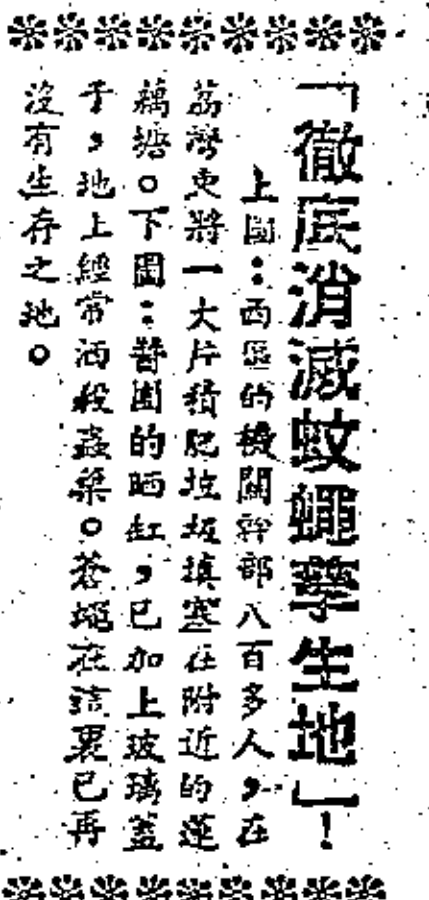 「徹底消滅蚊蠅孳生地」！
上圖：西區的機關幹部八百多人，在
荔灣東將一大片積肥垃圾填塞在附近的蓮
藕塘。下圖：醬園的晒缸，已加上玻璃蓋
于，地上經常洒殺蟲藥。蒼蠅在這裏已再
沒有生存之地。